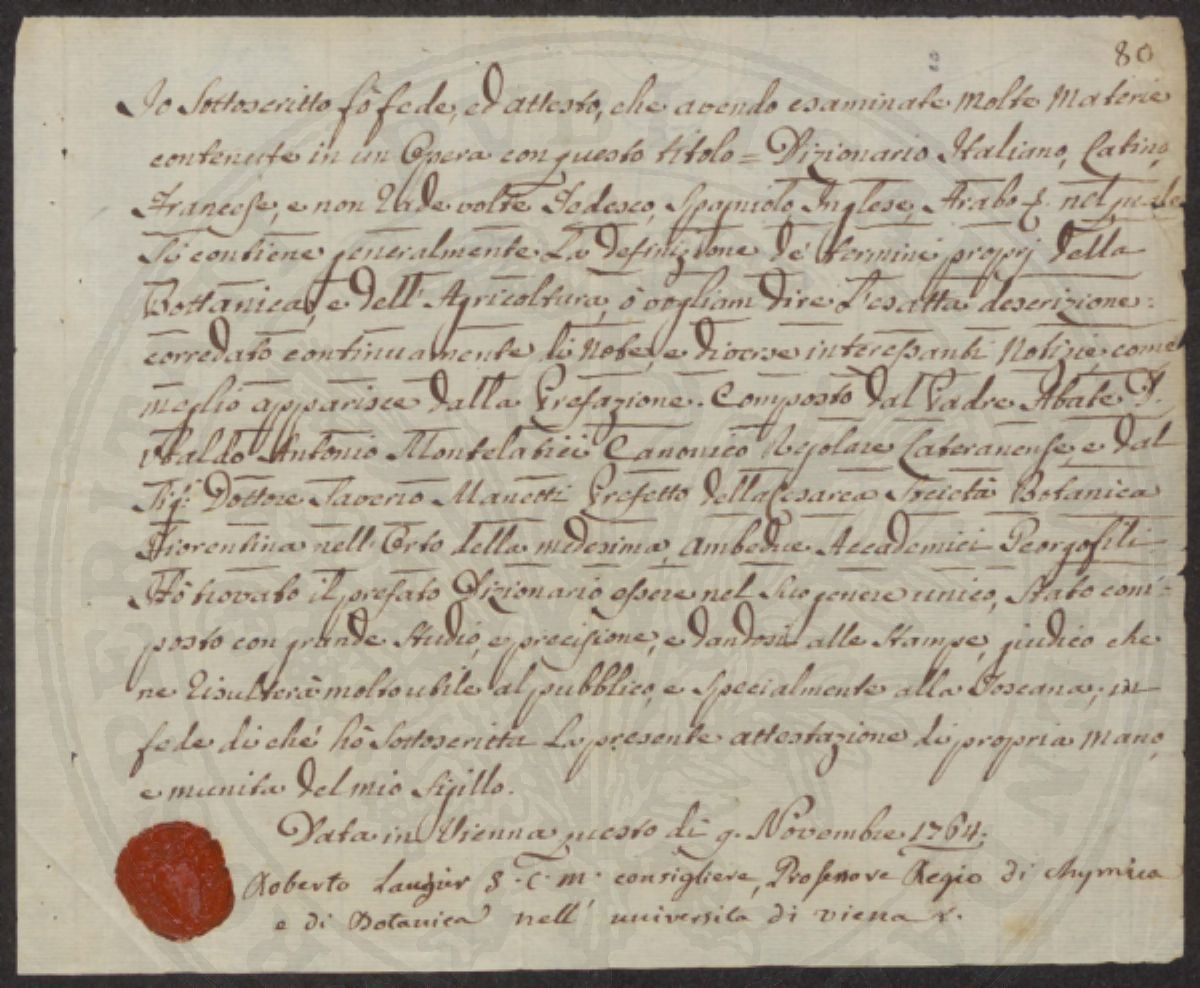 80
Io Sottoscritto fò fede, ed attesto, che avendo esaminate Molte Materie
contenute in un Opera con questo titolo = Dizionario Italiano, Latino,
Francese, e non Rade volte Todesco, Spagniolo, Inglese, Arabo &. nel quale
Si contiene generalmente La definizione de' termini proprj della
Bottanica, e dell' Agricoltura, ò vogliam dire L'esatta descrizione:
corredato continuamente di Note, e diverse interessanti Notizie come
meglio apparisce dalla Prefazione. Composto dal Padre Abate D.
Ubaldo Antonio Montelatici Canonico Regolare Lateranense, e dal
Sig.r Dottore Saverio Manetti Prefetto della Cesarea Società Botanica
Fiorentina nell' Orto della medesima, Ambedue Accademici Georgofili
Hò trovato il prefato Dizionario essere nel Suo genere unico, Stato com-
posto con grande Studio, e precisione, e dandosi alle Stampe, giudico che
ne Risulterà molto utile al pubblico, e Specialmente alla Toscana, in
fede di che' hò Sottoscritta La presente attestazione di propria Mano,
e munita del mio Sigillo.
Data in Vienna questo dì 9. Novembre 1764.
Roberto Laugier S. C. M. consigliere, Professore Regio di chymica
e di Botanica nell' universita di viena